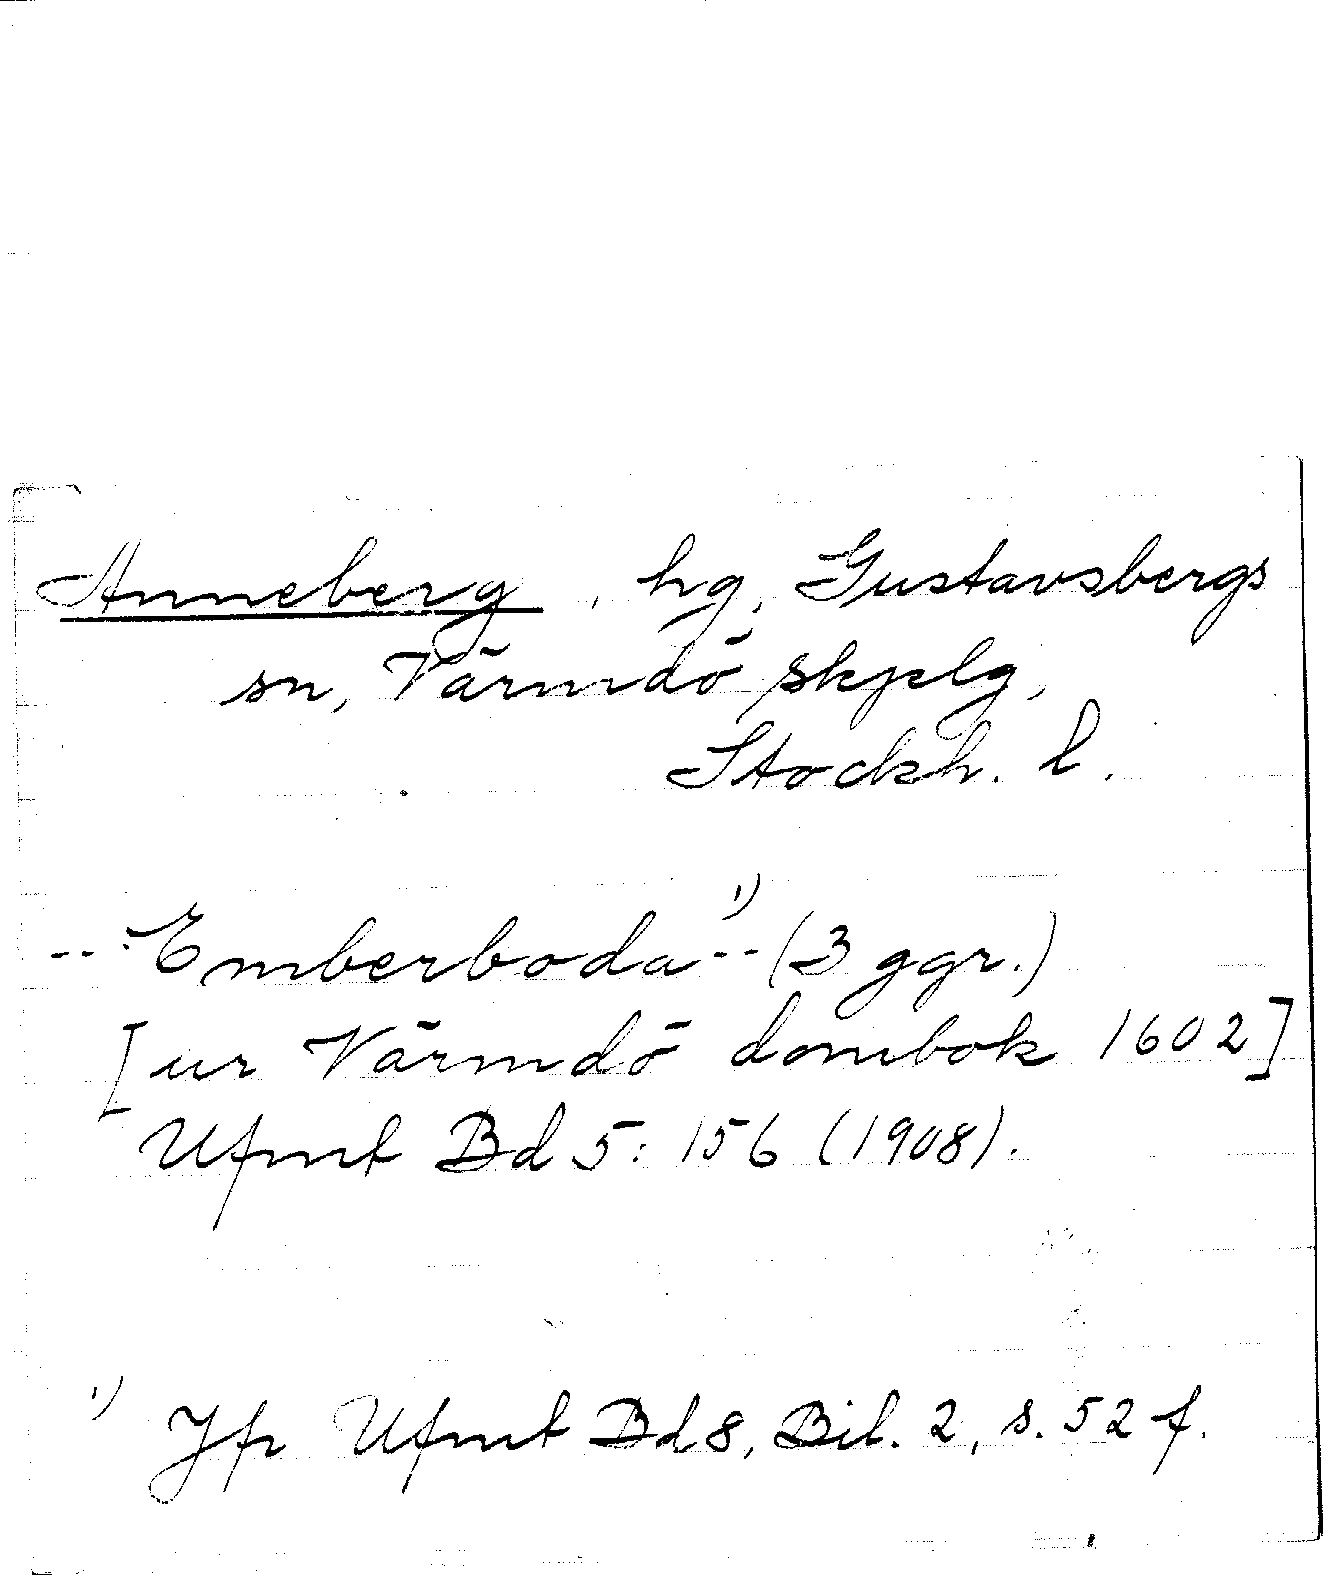 Anneberg, hg, Gustavsbergs
sn, Värmdö skplg,
Stockh. l.
-- Emberboda ¹) -- (3 ggr.)
[ur Värmdö dombok 1602]
Ufmt Bd 5: 156 (1908).
¹) Jfr Ufmt Bd 8, Bil. 2, s. 52 f.